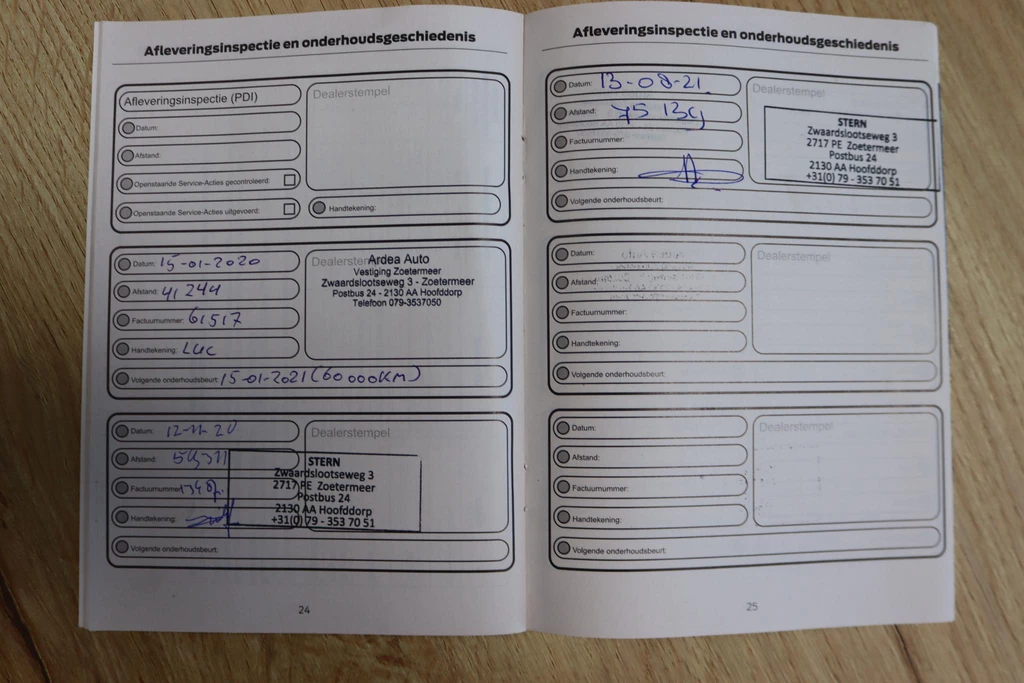 Afleveringsinspectie en onderhoudsgeschiedenis
Afleveringsinspectie (PDI)
Dealerstempel
Datum:
Afstand:
Openstaande Service-Acties gecontroleerd:
Openstaande Service-Acties uitgevoerd:
Handtekening:
Datum: 15-01-2020
Afstand: 41 244
Factuurnummer: 61517
Handtekening: Luc
Volgende onderhoudsbeurt: 15-01-2021 (60 000KM)
Dealerstempel
Ardea Auto
Vestiging Zoetermeer
Zwaardslootseweg 3 - Zoetermeer
Postbus 24 - 2130 AA Hoofddorp
Telefoon 079-3537050
Datum: 12-11-20
Afstand:
Factuurnummer:
Handtekening:
Volgende onderhoudsbeurt:
Dealerstempel
STERN
Zwaardslootseweg 3
2717 PE Zoetermeer
Postbus 24
2130 AA Hoofddorp
+31(0) 79 - 353 70 51
24
Afleveringsinspectie en onderhoudsgeschiedenis
Datum: 13-08-21
Afstand: 75 139
Factuurnummer:
Handtekening:
Volgende onderhoudsbeurt:
Dealerstempel
STERN
Zwaardslootseweg 3
2717 PE Zoetermeer
Postbus 24
2130 AA Hoofddorp
+31(0) 79 - 353 70 51
Datum:
Afstand:
Factuurnummer:
Handtekening:
Volgende onderhoudsbeurt:
Dealerstempel
Datum:
Afstand:
Factuurnummer:
Handtekening:
Volgende onderhoudsbeurt:
Dealerstempel
25